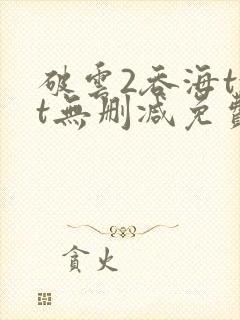 破雲2吞海t
t無删减免費
貪火